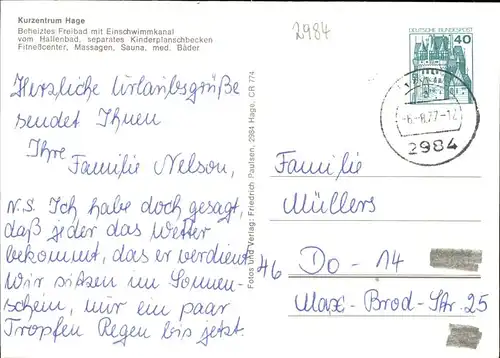 Kurzentrum Hage
Beheiztes Freibad mit Einschwimmkanal
vom Hallenbad, separates Kinderplanschbecken
Fitneßcenter, Massagen, Sauna, med. Bäder
2984
DEUTSCHE BUNDESPOST
40
-6.-8.77-12
2984
Herzliche Urlaubsgrüße
sendet Ihnen
Ihre
Familie Nelson,
N.S. Ich habe doch gesagt,
daß jeder das Wetter
bekommt, das er verdient
Wir sitzen im Sonnen-
schein, nur ein paar
Tropfen Regen bis jetzt.
Fotos und Verlag: Friedrich Paulsen, 2984 Hage, CR 774
Familie
Müllers
46 Do - 14
Max-Brod-Str. 25